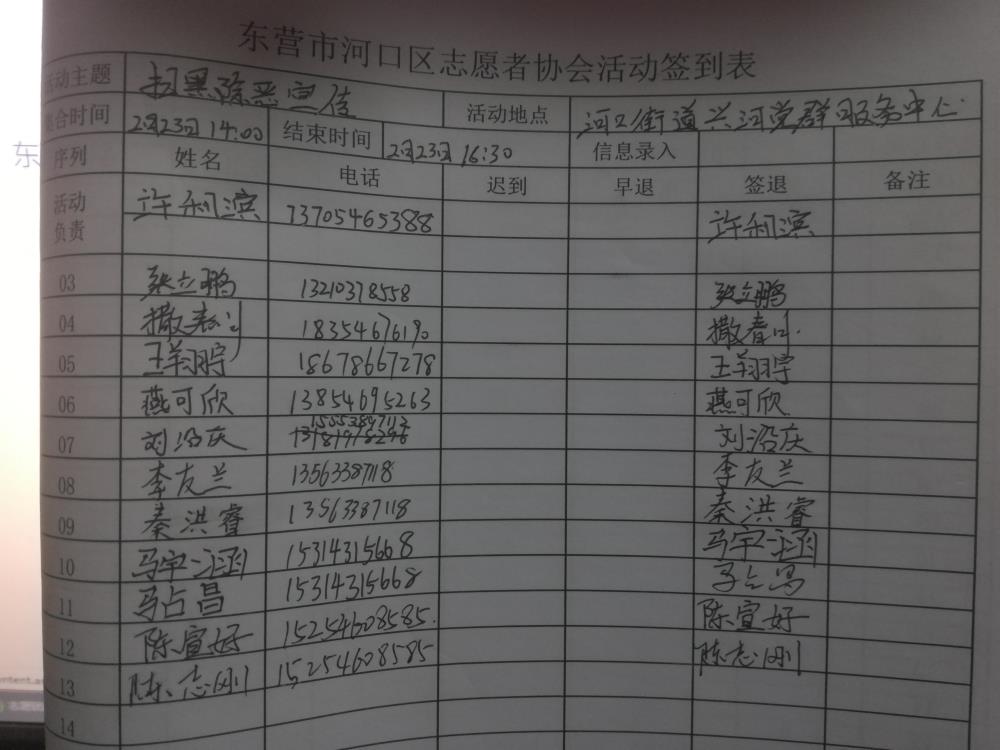 东营市河口区志愿者协会活动签到表
活动主题 扫黑除恶宣传 活动地点 河口街道兴河党群服务中心
集合时间 2月23日 14:00 结束时间 2月23日 16:30 信息录入
序列 姓名 电话 迟到 早退 签退 备注
活动负责 许利滨 13705465388 许利滨
03 张立鹏 13210378558 张立鹏
04 撒春 18354676190 撒春
05 王翔宇 18678667278 王翔宇
06 燕可欣 13854695263 燕可欣
07 刘沿庆 15553897113 刘沿庆
08 李友兰 13563387118 李友兰
09 秦洪睿 13563387118 秦洪睿
10 马宇涵 15314315668 马宇涵
11 马占昌 15314315668 马占昌
12 陈宣好 15254608585 陈宣好
13 陈志刚 15254608585 陈志刚
14
东